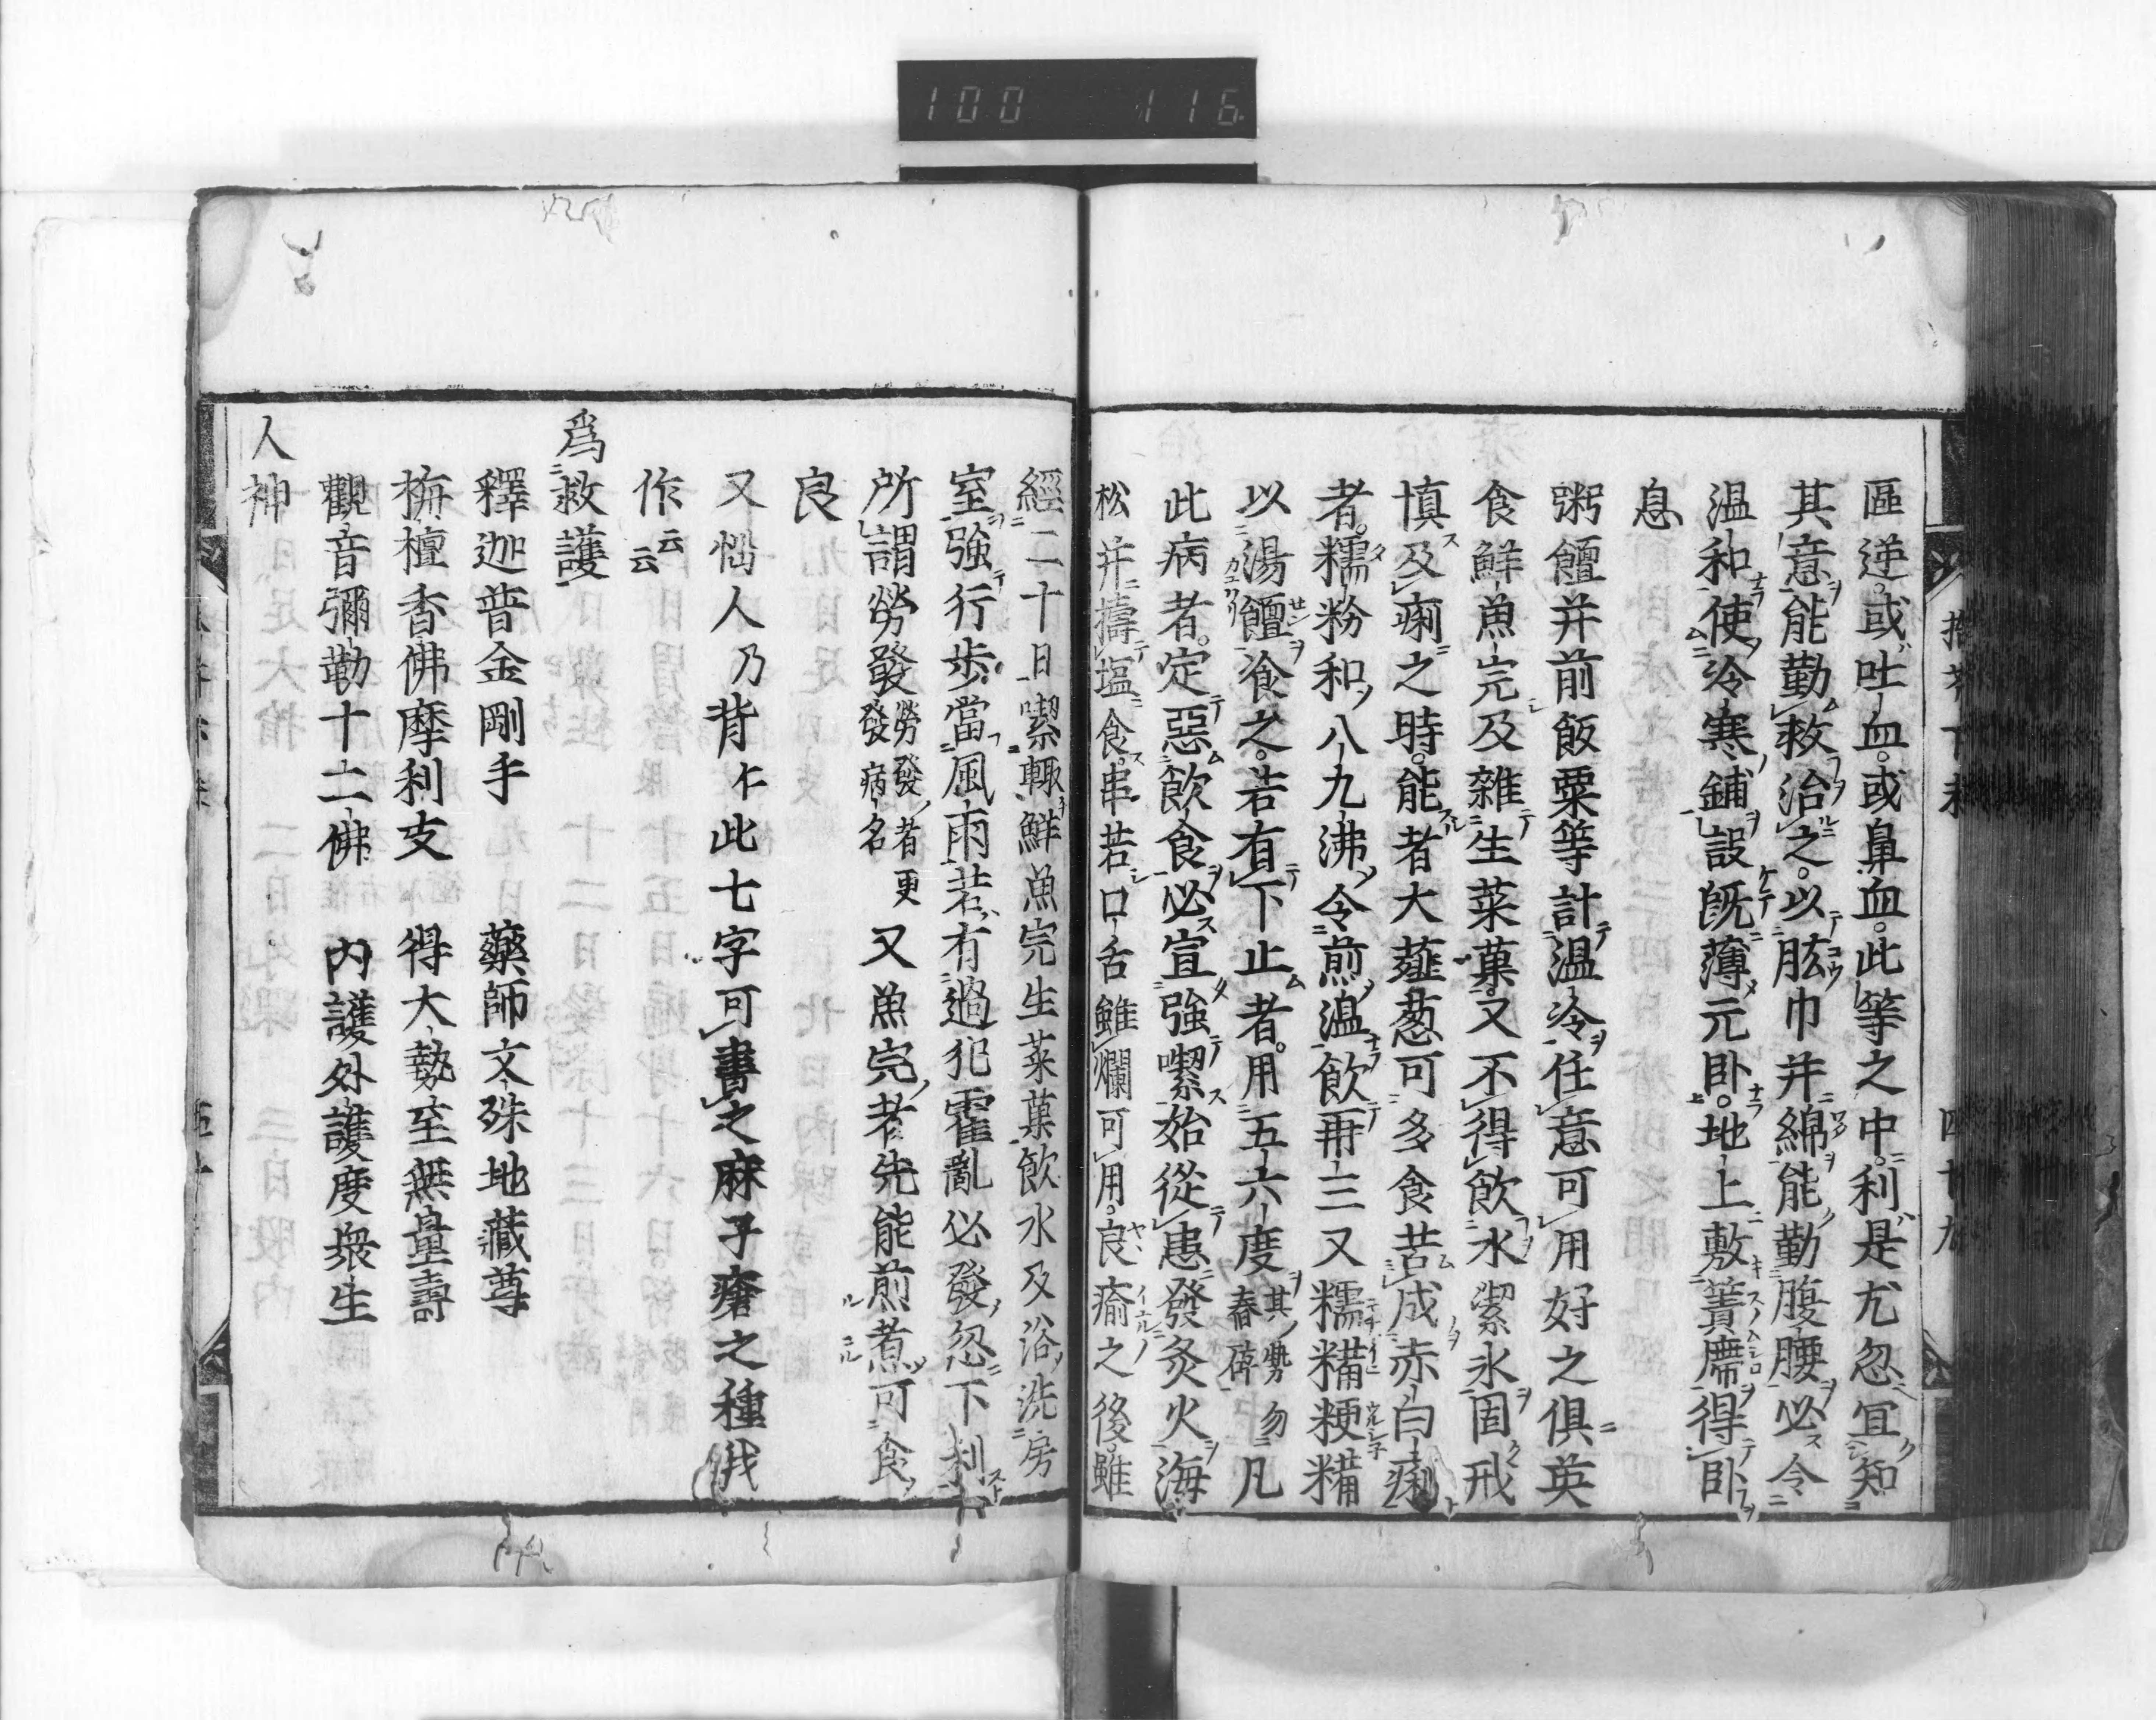 100 116
區逆。或吐血。或鼻血。此等之中。利是尤忽冝知
其意能勤救治之。以肱巾并綿能勤腹腰必令
温和使冷寒鋪設既薄元卧。地上敷簀席得卧
息
粥饘并前飯粟等計温冷任意可用好之倶英
食鮮魚宍及雜生菜菓。又不得飲水潔氷固戒
慎及痢之時。能者大薤葱可多食苦成赤白痢
者。糯粉和八九沸令煎温飲再三又糯糒粳糒
以湯饘飡之。若有下止者。用五六度其㔟勿舂碎凡
此病者。定惡飲食必宣強喫始從患發灸火海
松并擣塩食。串若口舌雖爛可用。良瘉之後雖
經二十日喫輙鮮魚宍生菜菓飲水及浴洗房
室強行歩當風雨若有過犯霍亂必發忽下利
所謂勞發勞發者更發病名又魚宍者先能煎煮可食
良
又惱人乃背仁此七字可書之麻子瘡之種我
作云云
爲救護
釋迦普金剛手 藥師文殊地藏尊
栴檀香佛摩利支 得大勢至無量壽
觀音彌勒十二佛 内護外護度衆生
人神